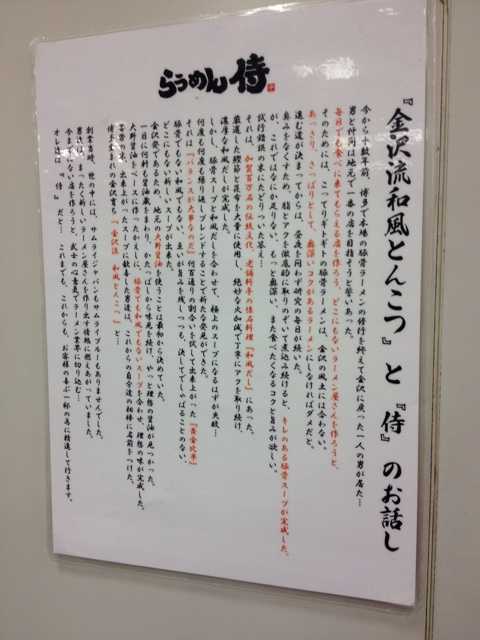 らうめん侍
『金沢流和風とんこつ』と『侍』のお話し
今から十数年前、博多で本場の豚骨ラーメンの修行を終えて金沢に戻った一人の男が居た…
男と仲間は地元で一番の店を目指そうと誓いあった。
毎日でも食べに来てもらえる店を作ろう。どこにもないラーメン屋さんを作ろうと。
そのためには、こってりギトギトの豚骨ラーメンは、金沢の風土には合わない。
あっさり、さっぱりとして、奥深いコクがあるラーメンにしなければダメだと。
進む道が決まってからは、昼夜を問わず研究の毎日が続いた。
臭みをなくすため、脂とアクを徹底的に取りのぞいて煮込み続けると、キレのある豚骨スープが完成した。
が、これではなにか足りない。もっと奥深い、また食べたくなるコクと旨みが欲しい。
試行錯誤の末にたどりついた答え…
それは、加賀百万石の伝統文化、老舗料亭の懐石料理『和風だし』にあった。
厳選した鰹節と昆布を大量に使用し、絶妙な火加減で丁寧にアクを取り続け、
濃厚な和風だしが完成した。
しかし、豚骨スープと和風だしを合わせて、極上のスープになるはずが失敗…
何度も何度も繰り返しブレンドすることで新たな発見ができた。
それは『バランスが大事なのだ』何百通りの割合いを試して出来上がった『黄金比率』
豚骨でもなく和風でもない、互いが旨みを残しつつも、決してでしゃばることのない、
どこにもない新しいスープが出来ました。
金沢で愛されている、地元の大野醤油を使うことは最初から決めていた。
一日に何軒も醤油蔵をまわり、かたっぱしから味見を続け、やっと理想の醤油が見つかった。
大野醤油をベースに作ったかえしに、豚骨でも和風でもないスープを合わせ、理想の味が完成した。
苦労の末、出来上がったスープに歓喜した男達は、これからの自分達の相棒に名前をつけた。
博多生まれの金沢育ち『金沢流 和風とんこつ』と…
創業当時、世の中には、サムライジャパンもサムライブルーもありませんでした。
男達は、まったく新しいラーメン屋さんを作り出す情熱に燃えあがっていました。
今までにない店を作ろうと、武士の心意気でラーメン業界に切り込む…
オレ達は、『侍』だと… これまでも、これからも、お客様の喜ぶ一杯の為に精進して行きます。